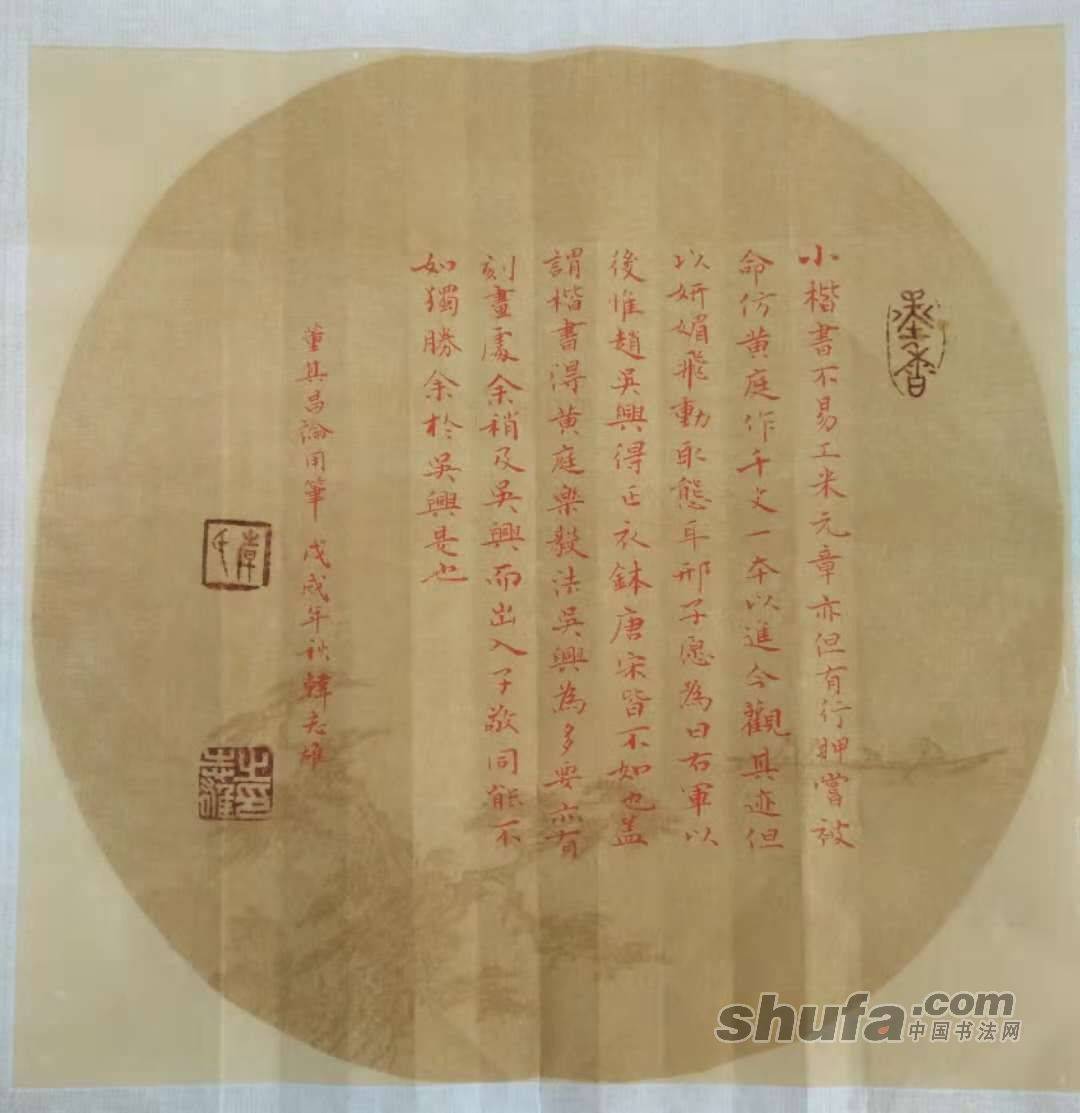 墨香
小楷書不易工米元章亦但有行押嘗被
命仿黄庭作千文一本以進今觀其迹但
以妍媚飛動取態耳邢子愿為曰右軍以
後惟趙吳興得正衣鉢唐宋皆不如也蓋
謂楷書得黄庭樂毅法吳興為多要亦有
刻畫處余稍及吳興而出入子敬同能不
如獨勝余於吳興是也
董其昌論用筆 戊戌年秋韓志雄
韓氏
志雄之印
shufa.com
中国书法网